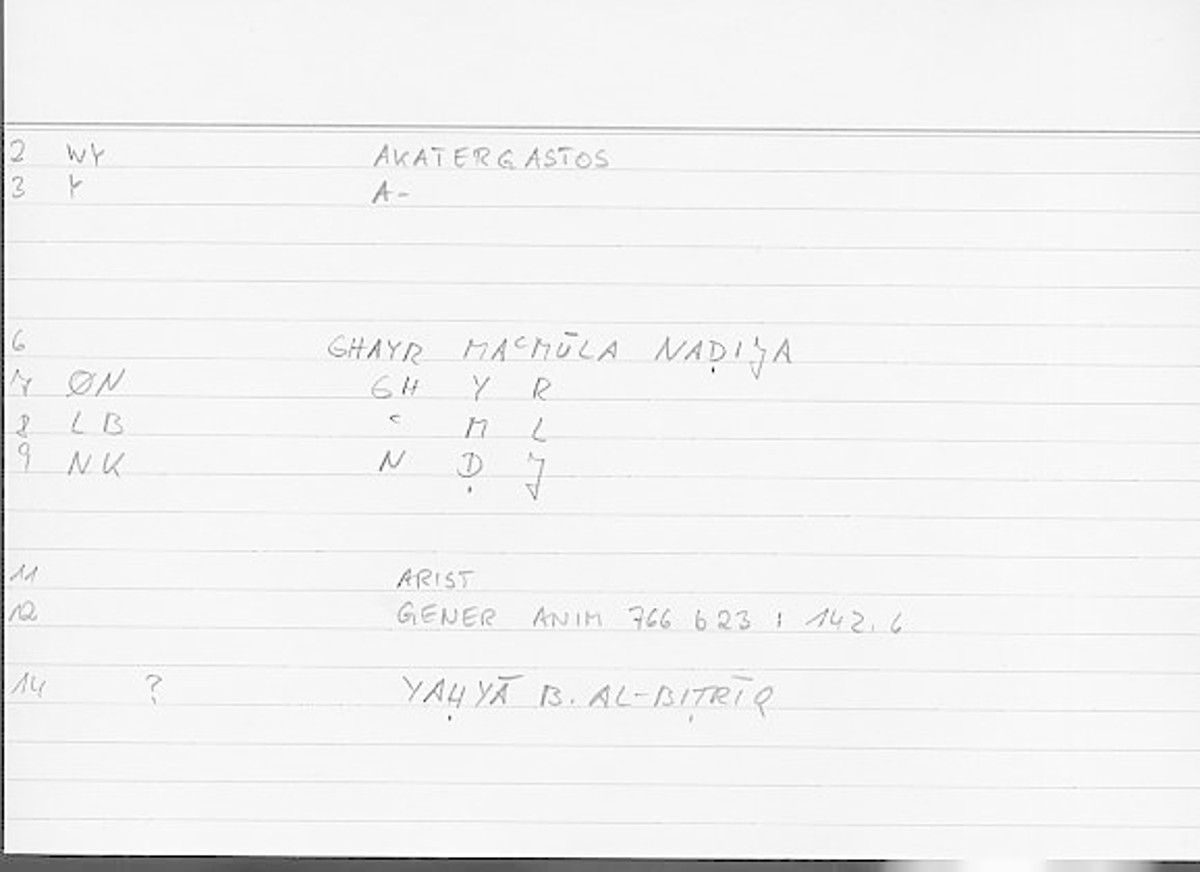 2 WY AKATERGASTOS
3 Y A-
6 GHAYR MAᶜMŪLA NAḌIJA
7 ØN GH Y R
8 LB ᶜ M L
9 NK N Ḍ J
11 ARIST
12 GENER ANIM 766 b 23 : 142.6
14 ? YAḤYĀ B. AL-BIṬRĪQ